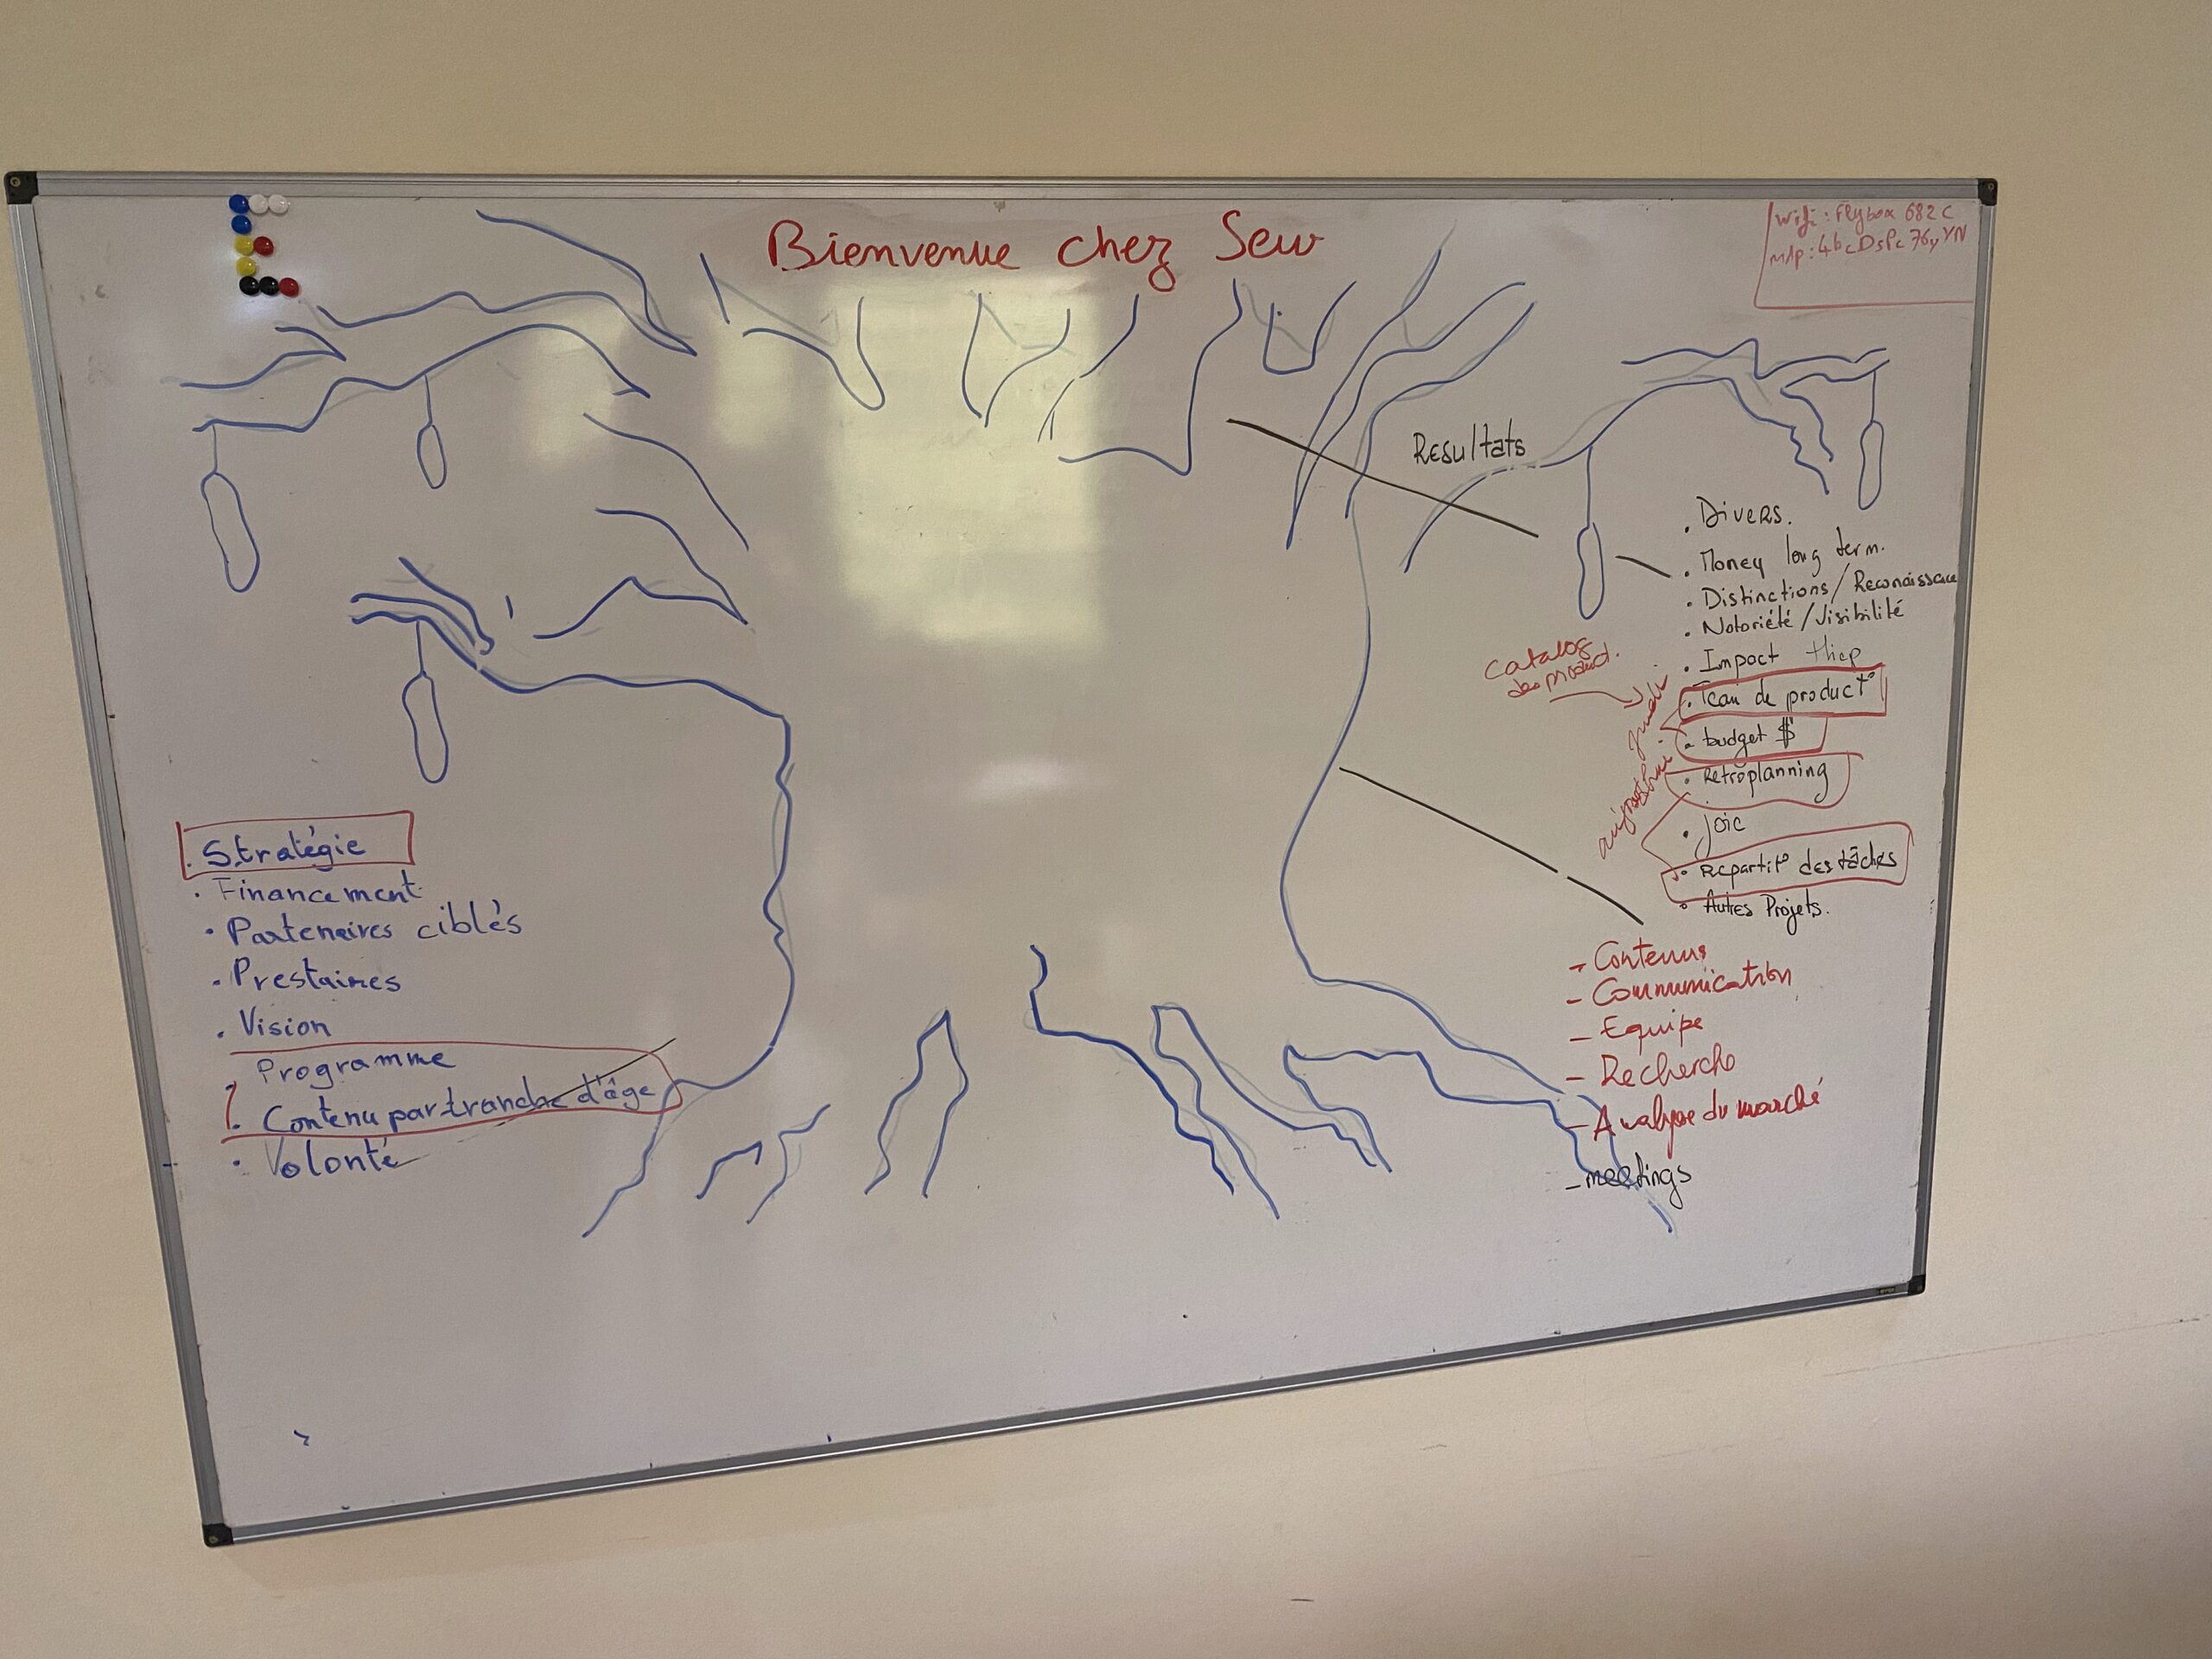 Bienvenue chez Sew
Wifi : Flybox 682C
mdp : 4bcDsPc76yYN
Resultats
. Divers.
. Money long term.
. Distinctions/Reconaissance
. Notoriété/Visibilité
. Impact
Catalog
de product.
jeudi
aujourd'hui
. de product°
. budget $
. Retroplanning
. joie
. Repartit° des tâches
. Autres Projets.
- Contenus
- Communication
- Equipe
- Recherche
- Analyse du marché
- meetings
. Stratégie
. Financement
. Partenaires ciblés
. Prestaires
. Vision
. Programme
. Contenu par tranche d'âge
. Volonté